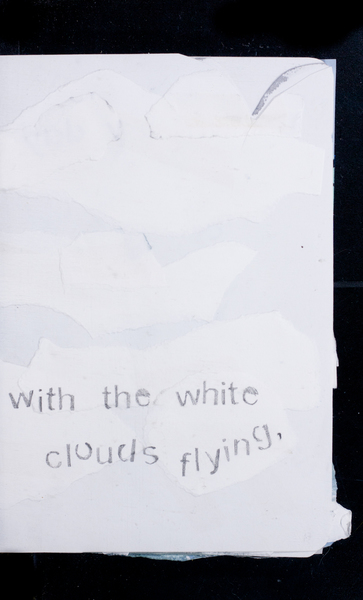 with the white
clouds flying,